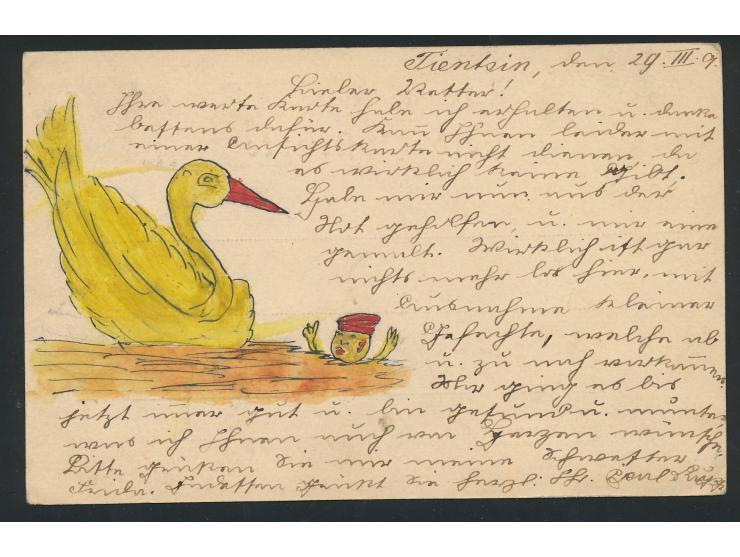 Tientsin, den 29.III.9.
Lieber Vetter!
Ihre werte Karte habe ich erhalten u. danke
bestens dafür. Kan Ihnen leider mit
einer Ansichtskarte nicht dienen, da
es wirklich keine gibt.
Habe mir nun aus der
Not geholfen, u. mir eine
gemalt. Wirklich ist gar
nichts mehr los hier, mit
Ausnahme kleiner
Gefechte, welche ab
u. zu noch vorkamen.
Mir ging es bis
jetzt imer gut u. bin gesund u. munter
was ich Ihnen auch von Herzen wünsche.
Bitte grüßen Sie mir meine Schwester
Frida. Indessen grüßt Sie herzl. Ihr Paul